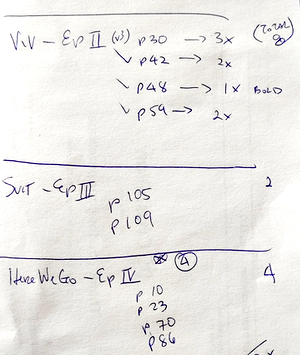 ViV - Ep II (v3) p30 → 3x (TOTAL 8)
p42 → 2x
p48 → 1x BOLD
p59 → 2x
SuiT - Ep III 2
p 105
p 109
HereWeGo - Ep IV 4 4
p 10
p 23
p 70
p 86